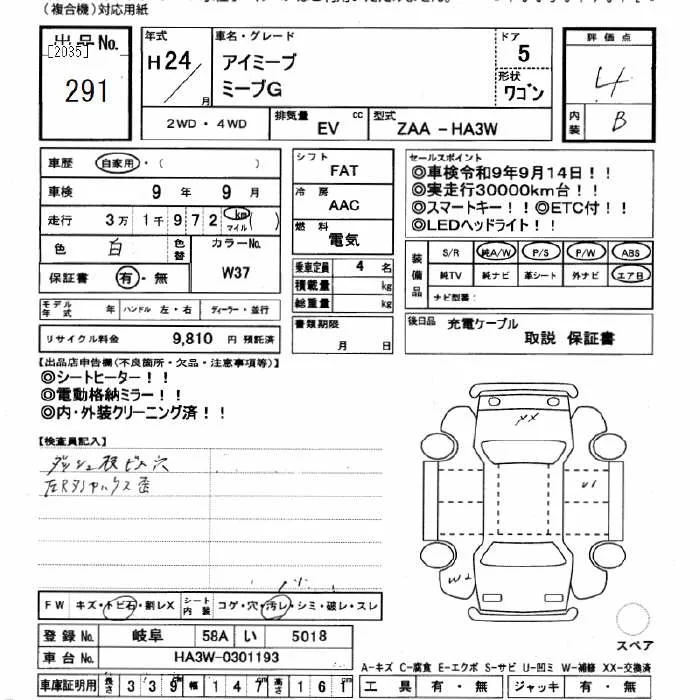 (複合機)対応用紙
出品No.
[2035]
291
年式
H24/月
車名・グレード
アイミーブ
ミーブG
ドア
5
形状
ワゴン
評価点
4
内装
B
2WD・4WD
排気量 EV cc
型式 ZAA-HA3W
車歴 自家用・( )
車検 9年9月
走行 3万1千972 km マイル ( )
色 白 色替
カラーNo. W37
保証書 有・無
シフト FAT
冷房 AAC
燃料 電気
乗車定員 4名
積載量 kg
総重量 kg
セールスポイント
◎車検令和9年9月14日!!
◎実走行30000km台!!
◎スマートキー!!◎ETC付!!
◎LEDヘッドライト!!
装備品
S/R 純A/W P/S P/W ABS
純TV 純ナビ 革シート 外ナビ エアB
ナビ型番:
モデル年式 年 ハンドル 左・右 ディーラー・並行
リサイクル料金 9,810 円 預託済
書類期限
月 日
後日品 充電ケーブル
取説 保証書
【出品店申告欄(不良箇所・欠品・注意事項等)】
◎シートヒーター!!
◎電動格納ミラー!!
◎内・外装クリーニング済!!
【検査員記入】
ダッシュ板ビス穴
XX
U1
W2
FW キズ・トビ石・割レX
シート内装 コゲ・穴・汚レ・シミ・破レ・スレ
登録No. 岐阜 58A い 5018
車台No. HA3W-0301193
車庫証明用 長さ 339 幅 147 高さ 161
スペア
A-キズ C-腐食 E-エクボ S-サビ U-凹ミ W-補修 XX-交換済
工具 有・無 ジャッキ 有・無